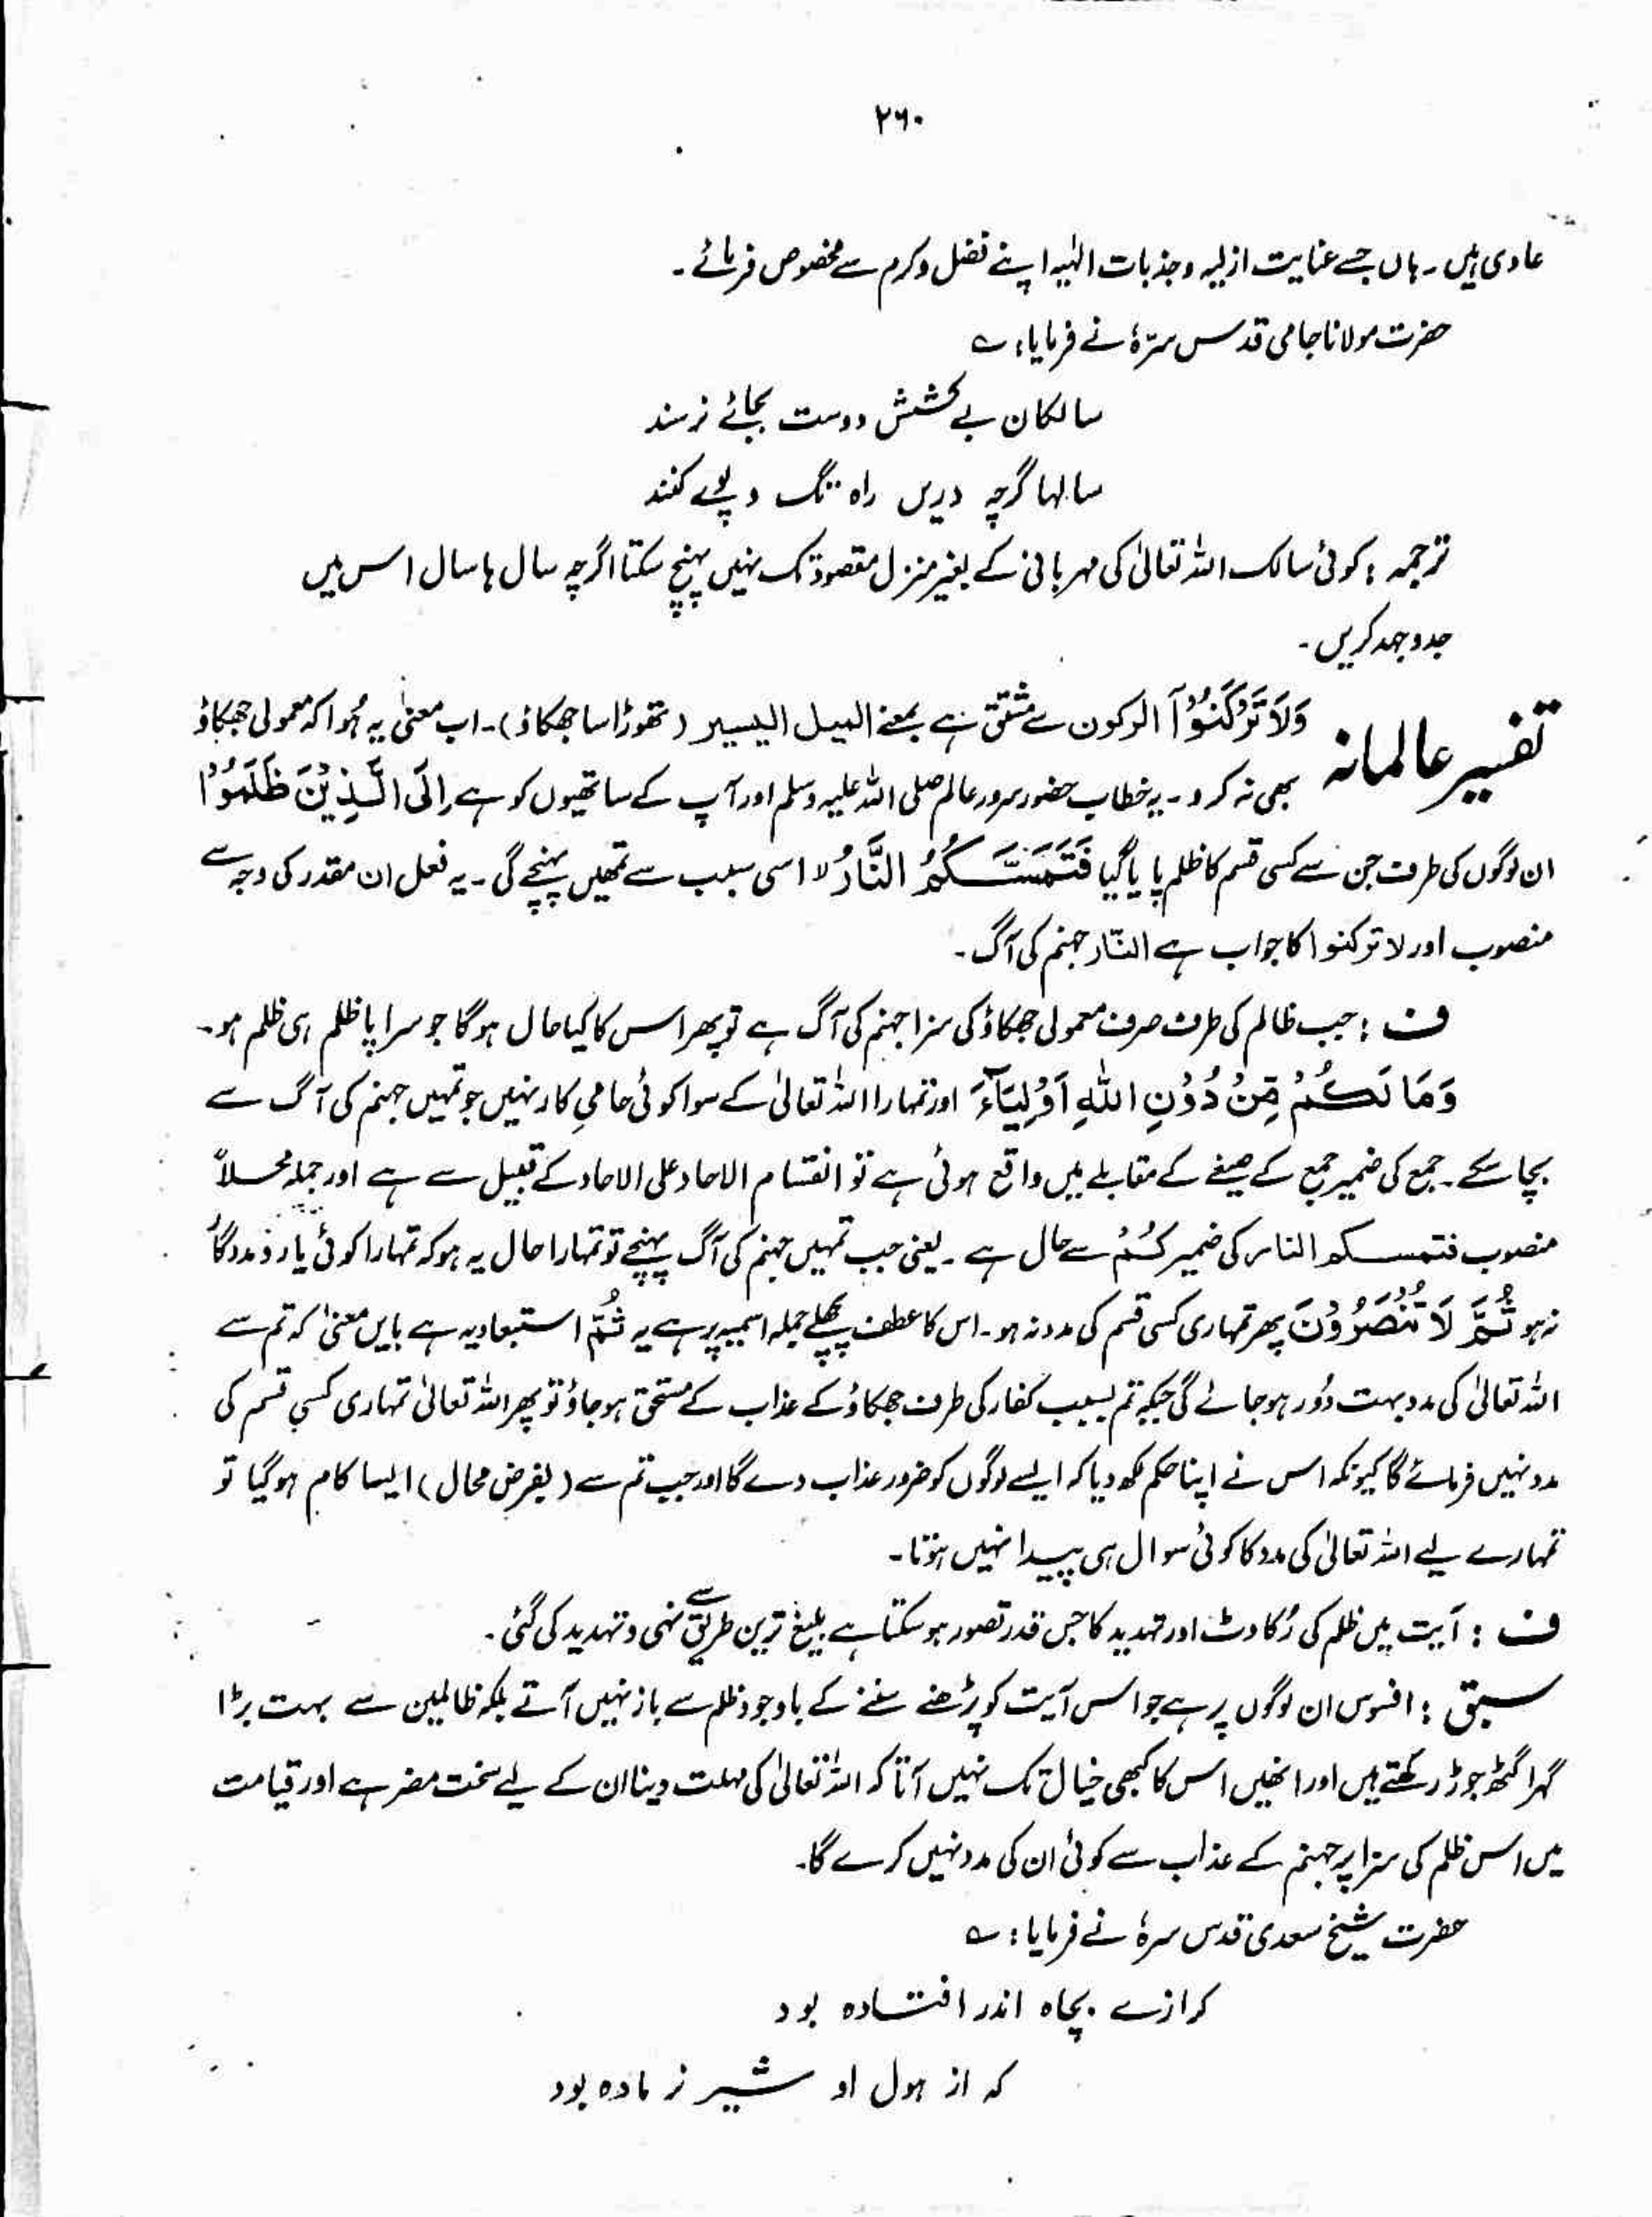 ۲۶۰
عادی ہیں۔ ہاں جسے عنایت ازلیہ و جذبات الٰہیہ اپنے فضل و کرم سے مخصوص فرمائے۔
حضرت مولانا جامی قدس سرّہٗ نے فرمایا: ؎
سالکان بے کشش دوست بجائے نرسند
سالہا گرچہ دریں راہ تگ و پوے کنند
ترجمہ : کوئی سالک اللہ تعالیٰ کی مہربانی کے بغیر منزل مقصود تک نہیں پہنچ سکتا اگرچہ سال ہا سال اس میں
جدوجہد کریں۔
تفسیر عالمانہ وَلَا تَرْكَنُوْٓا الرکون سے مشتق ہے بمعنے المیل الیسیر (تھوڑا سا جھکاؤ)۔ اب معنیٰ یہ ہُوا کہ معمولی جھکاؤ
بھی نہ کرو۔ یہ خطاب حضور سرور عالم صلی اللہ علیہ وسلم اور آپ کے ساتھیوں کو ہے اِلَی الَّذِیْنَ ظَلَمُوْا
ان لوگوں کی طرف جن سے کسی قسم کا ظلم پایا گیا فَتَمَسَّكُمُ النَّارُ لا اسی سبب سے تمھیں پہنچے گی۔ یہ فعل ان مقدر کی وجہ سے
منصوب اور لا ترکنوا کا جواب ہے النّار جہنم کی آگ۔
ف : جب ظالم کی طرف صرف معمولی جھکاؤ کی سزا جہنم کی آگ ہے تو پھر اس کا کیا حال ہوگا جو سراپا ظلم ہی ظلم ہو۔
وَمَا لَكُمْ مِّنْ دُوْنِ اللّٰهِ اَوْلِیَآءَ اور تمہارا اللہ تعالیٰ کے سوا کوئی حامیِ کار نہیں جو تمہیں جہنم کی آگ سے
بچا سکے۔ جمع کی ضمیر جمع کے صیغے کے مقابلے میں واقع ہوئی ہے تو انقسام الاحاد علی الاحاد کے قبیل سے ہے اور جملہ محلاً
منصوب فتمسکم النار کی ضمیر کُمْ سے حال ہے۔ یعنی جب تمہیں جہنم کی آگ پہنچے تو تمہارا حال یہ ہو کہ تمہارا کوئی یار و مددگار
نہ ہو ثُمَّ لَا تُنْصَرُوْنَ پھر تمہاری کسی قسم کی مدد نہ ہو۔ اس کا عطف پچھلے جملہ اسمیہ پر ہے یہ ثُمَّ استبعادیہ ہے بایں معنیٰ کہ تم سے
اللہ تعالیٰ کی مدد بہت دُور ہو جائے گی جبکہ تم بسبب کفار کی طرف جھکاؤ کے عذاب کے مستحق ہو جاؤ تو پھر اللہ تعالیٰ تمہاری کسی قسم کی
مدد نہیں فرمائے گا کیونکہ اس نے اپنا حکم لکھ دیا کہ ایسے لوگوں کو ضرور عذاب دے گا اور جب تم سے (بفرض محال) ایسا کام ہوگیا تو
تمہارے لیے اللہ تعالیٰ کی مدد کا کوئی سوال ہی پیدا نہیں ہوتا۔
ف : آیت میں ظلم کی رُکاوٹ اور تہدید کا جس قدر تصور ہو سکتا ہے بلیغ ترین طریق سے نہی و تہدید کی گئی۔
سبق : افسوس ان لوگوں پر ہے جو اس آیت کو پڑھنے سننے کے باوجود ظلم سے باز نہیں آتے بلکہ ظالمین سے بہت بڑا
گہرا گٹھ جوڑ رکھتے ہیں اور انھیں اس کا کبھی خیال تک نہیں آتا کہ اللہ تعالیٰ کی مہلت دینا ان کے لیے سخت مضر ہے اور قیامت
میں اس ظلم کی سزا پر جہنم کے عذاب سے کوئی ان کی مدد نہیں کرے گا۔
حضرت شیخ سعدی قدس سرہٗ نے فرمایا: ؎
کرازے بچاہ اندر افتادہ بود
کہ از ہول او شیر نر مادہ بود